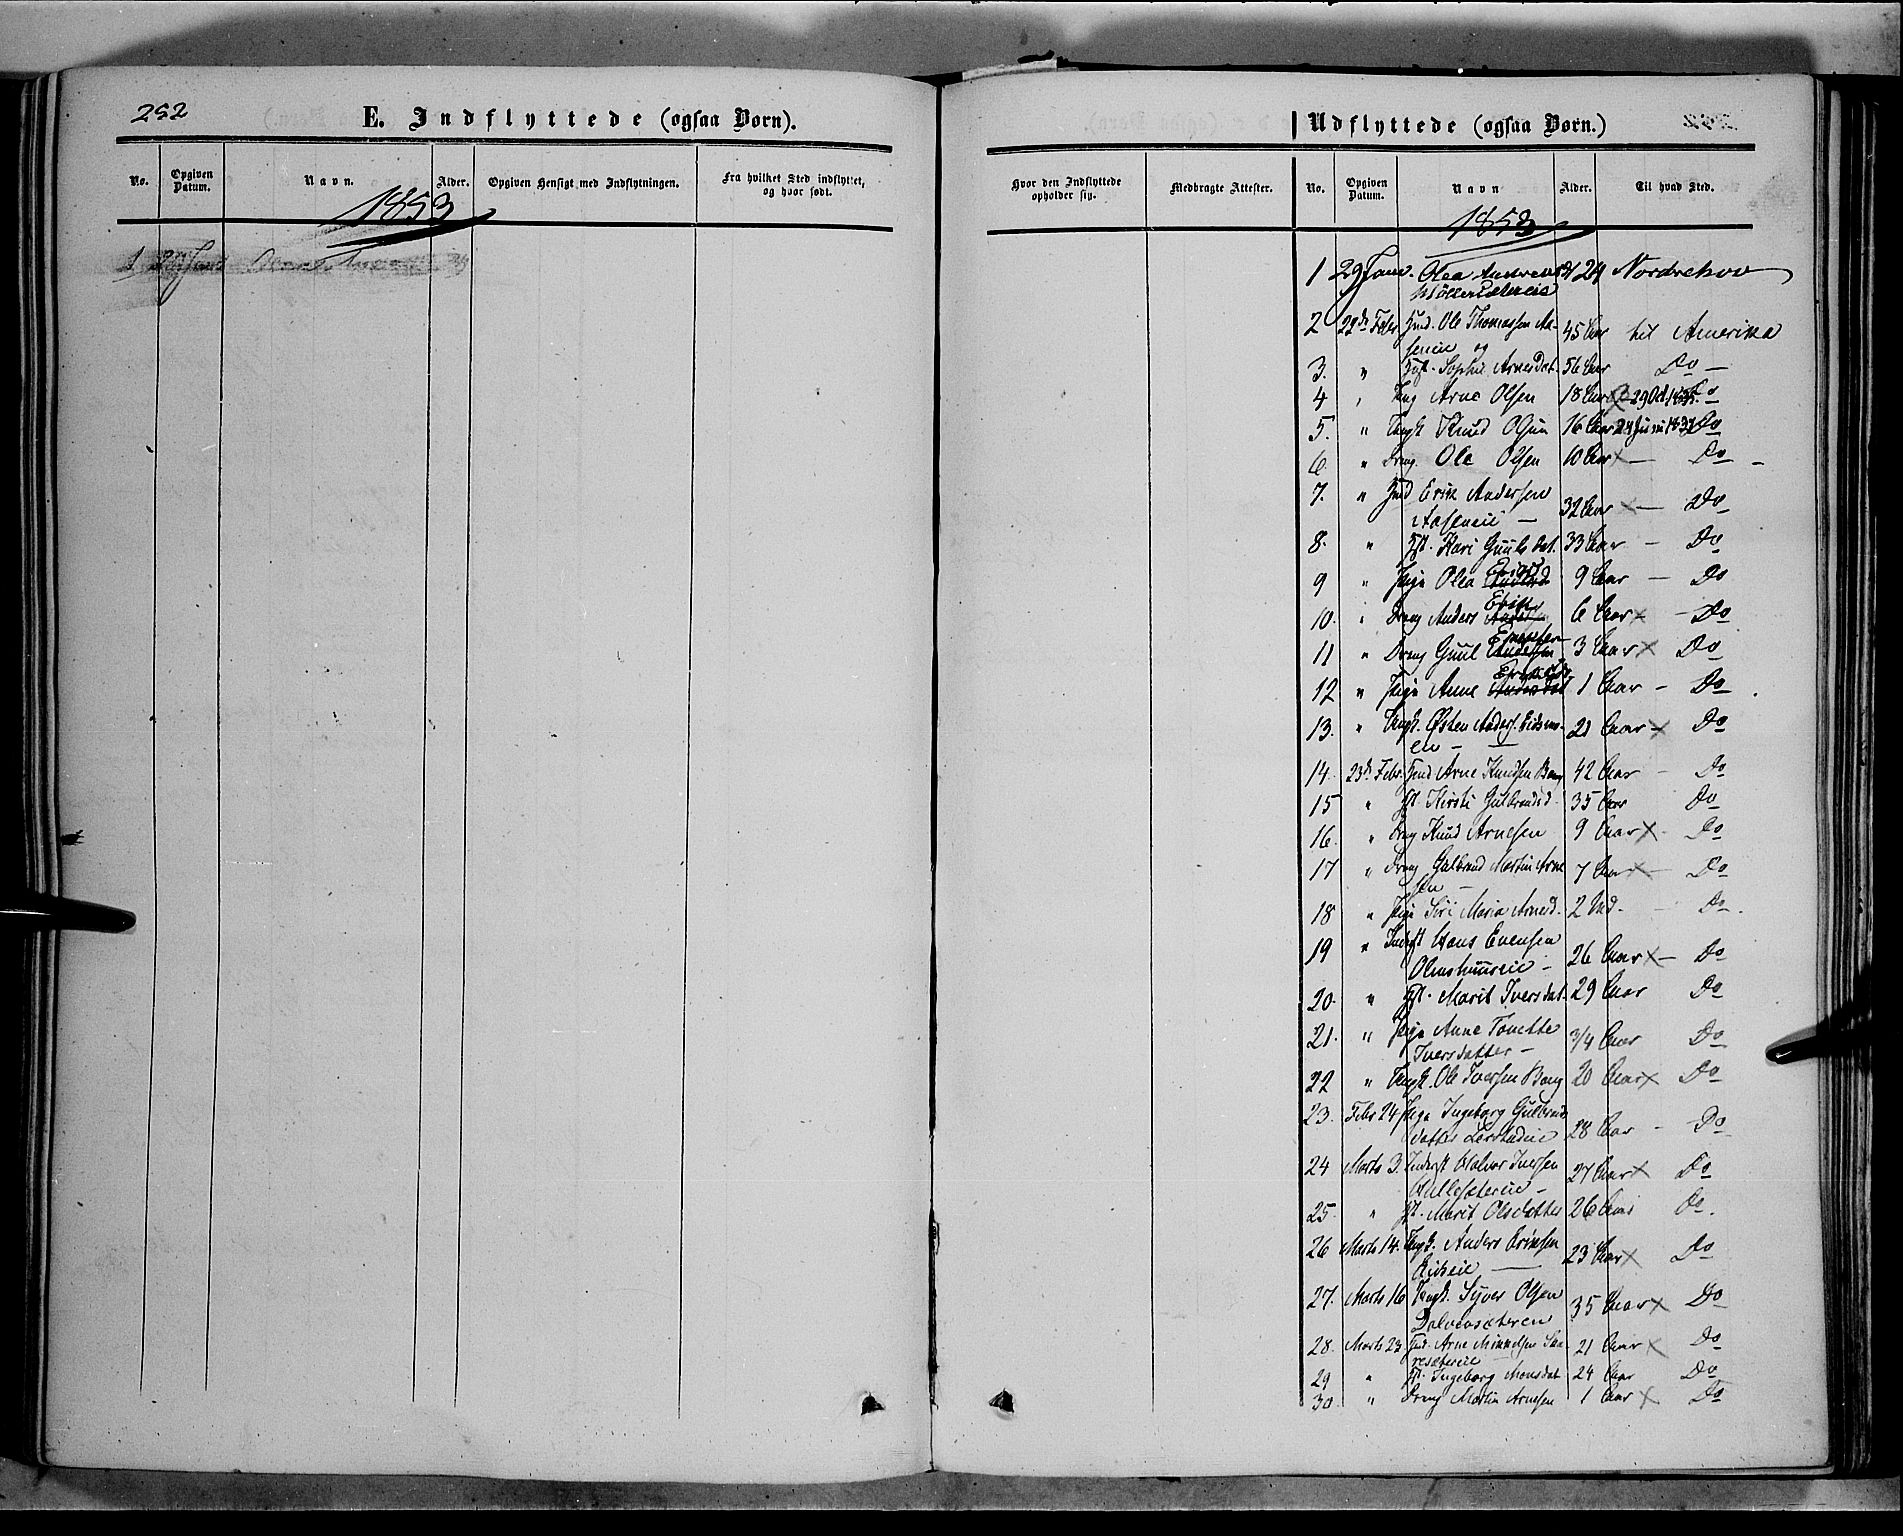 252
E. Indflyttede (ogsaa Børn).
No. Opgiven Datum. Navn. Alder. Opgiven Hensigt med Indflytningen. Fra hvilket Sted indflyttet, og hvor født.
1853
1
Udflyttede (ogsaa Børn.)
Hvor den Indflyttede opholder sig. Medbragte Attester. No. Opgiven Datum. Navn Alder. Til hvad Sted.
1853
1 29 Janv. Olea 24 Nordrehov
2 22de Febr. Ole Thomassen Aa- 45 Aar til Amerika
seneie og
3. " Hst. Sophie Arnesdat. 56 Aar Do
4 " Ung Arne Olsen 18 Aar 29 Oct. Do
5. " Ungk Knud Olsen 16 Aar 24 Juni 1837 Do
6. " Dreng. Ole Olsen 10 Aar x Do
7. " Erik Andersen
Aaseneie 32 Aar x Do
8. " Hst. Kari Guulsdat. 33 Aar Do
9 " Pige Olea 9 Aar Do
10. " Dreng Anders 6 Aar x Do
11 " Dreng Guul 3 Aar x Do
12 " Pige Anne 1 Aar Do
13. " Ungk. Østen Anders. Eidsmo- 21 Aar x Do
en
14. 23de Febr. Arne Knudsen Bang 42 Aar Do
15 " Hst. Kirsti Gulbrandsd. 35 Aar Do
16. " Dreng Knud Arnesen 9 Aar x Do
17 " Dreng Gulbrand Martin Arne 7 Aar x Do
sen
18 " Pige Siri Maria Arnesd. 2 Do
19 " Inderst Hans Evensen
eie 26 Aar x Do
20. " Hst. Marit Iversdat. 29 Aar Do
21. " Pige Anne Tonette
Iversdatter 3/4 Aar Do
22 " Ungk. Ole Iversen Bang 20 Aar x Do
23. Febr 24 Pige Ingeborg Gulbrands
datter 28 Aar Do
24 Marts 3. Inderst Halvor Iversen
27 Aar x Do
25. " Hst. Marit Olsdatter 26 Aar Do.
26 Marts 14. Ungk. Anders Eriksen
23 Aar x Do
27. Marts 16 Ungk. Syver Olsen
35 Aar x Do
28. Marts 23 Arne Mikkelsen 21 Aar x Do
29 " Hst. Ingeborg Monsdat 24 Aar Do
30. " Dreng Martin Arnesen 1 Aar x Do